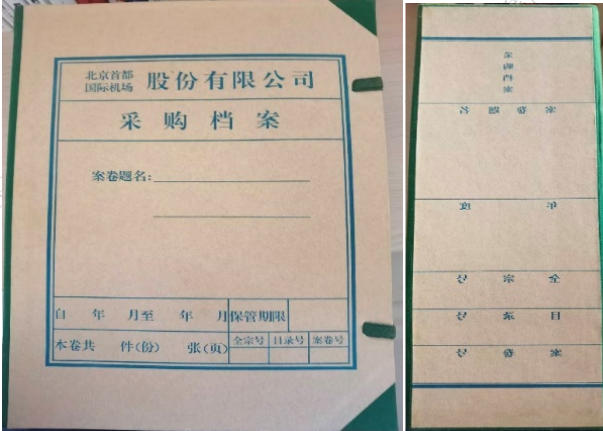 北京首都
国际机场
股份有限公司
采购档案
案卷题名:
自 年 月至 年 月 保管期限
本卷共 件(份) 张(页) 全宗号 目录号 案卷号
案卷号
目录号
全宗号
年度
案卷题名
采购档案